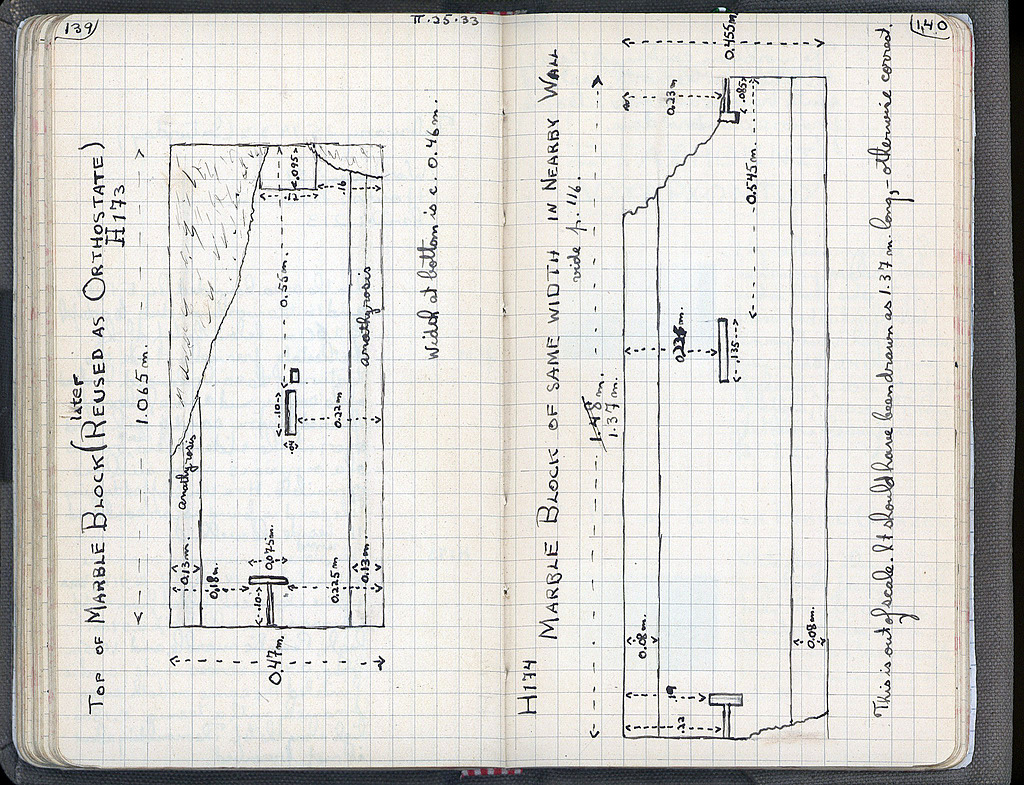 139
II.25.33
TOP OF MARBLE BLOCK (later REUSED AS ORTHOSTATE)
H173
1.065 m.
anathyrosis
0.13 m.
0.18 m.
.10
0.075 m.
0.225 m.
0.13 m.
0.47 m.
.10
.04
0.22 m.
0.55 m.
.12
.095
.16
anathyrosis
Width at bottom is c. 0.46 m.
140
H174
MARBLE BLOCK OF SAME WIDTH IN NEARBY WALL
vide p. 116.
1.48 m.
1.37 m.
0.455 m.
0.23 m
.085
0.545 m.
.135
0.08 m.
0.08 m.
.19
.22
This is out of scale. It should have been drawn as 1.37 m. long, – otherwise correct.